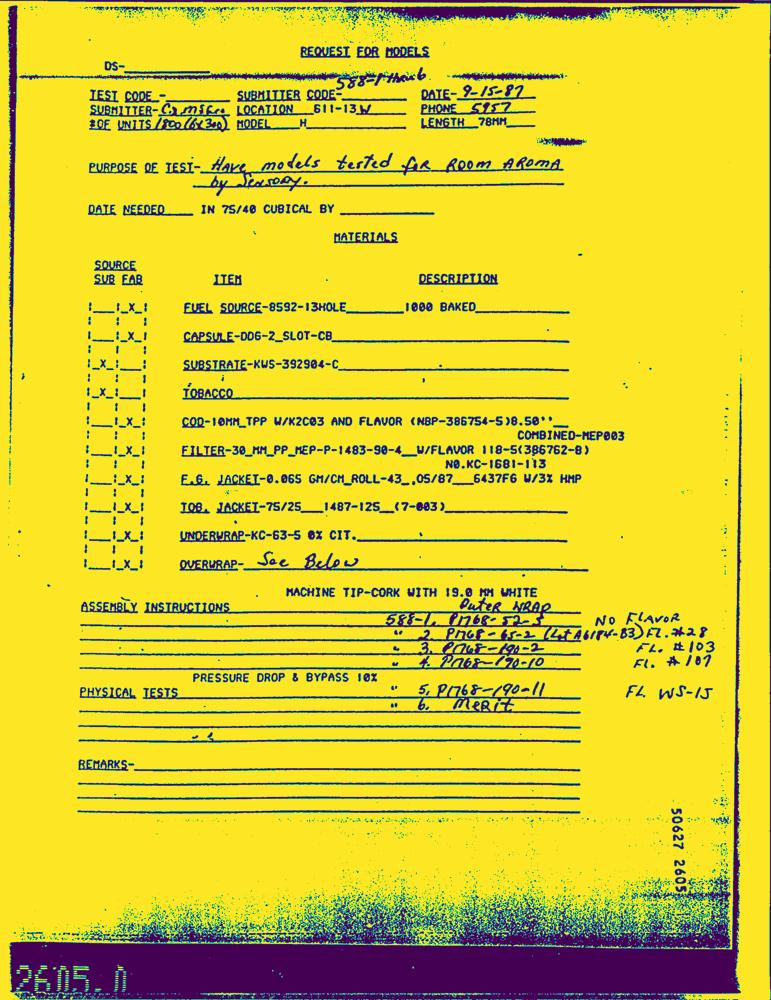 REQUEST FOR MODELS
DS-
588-1 thru 6
TEST CODE - SUBMITTER CODE- DATE- 9-15-87
SUBMITTER- LOCATION 611-13W PHONE 5957
#OF UNITS 1800 (6x300) MODEL H LENGTH 78MM
PURPOSE OF TEST- Have models tested for Room AROMA
by Sensory.
DATE NEEDED IN 75/40 CUBICAL BY
MATERIALS
SOURCE
SUB FAB ITEM DESCRIPTION
|___|_X_| FUEL SOURCE-8592-13HOLE 1000 BAKED
|___|_X_| CAPSULE-DDG-2_SLOT-CB
|_X_|___| SUBSTRATE-KWS-392904-C
|_X_|___| TOBACCO
|___|_X_| COD-10MM_TPP W/K2CO3 AND FLAVOR (NBP-386754-5)8.50''
COMBINED-MEP003
|___|_X_| FILTER-30_MM_PP_MEP-P-1483-90-4__W/FLAVOR 118-5(386762-8)
NO.KC-1681-113
|___|_X_| F.G. JACKET-0.065 GM/CM_ROLL-43_.05/87___6437F6 W/3% HMP
|___|_X_| TOB. JACKET-75/25___1487-125__(7-003)
|___|_X_| UNDERWRAP-KC-63-5 0% CIT.
|___|_X_| OVERWRAP- See Below
MACHINE TIP-CORK WITH 19.0 MM WHITE
ASSEMBLY INSTRUCTIONS Outer WRAP
588-1. P1768-52-3 NO FLAVOR
" 2. P1768-65-2 (Lot A6184-B3) FL. #28
" 3. P1768-190-2 FL. #103
" 4. P1768-190-10 FL. #107
PRESSURE DROP & BYPASS 10%
PHYSICAL TESTS " 5. P1768-190-11 FL WS-15
" 6. Merit
REMARKS-
50627 2605
2605.0